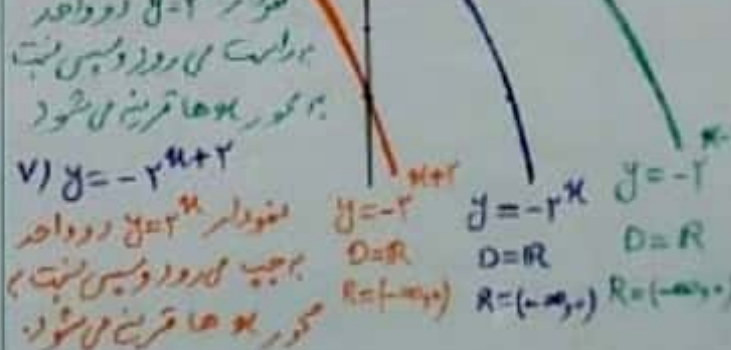 نمودار y=۲ دو واحد
به راست می‌رود و سپس نسبت
به محور xها قرینه می‌شود
۷) y=-۲^x+۲
نمودار y=۲^x دو واحد
به چپ می‌رود و سپس نسبت به
محور xها قرینه می‌شود.
y=-۲^x+۲
D=ℝ
R=(-∞,۰)
y=-۲^x
D=ℝ
R=(-∞,۰)
y=-۲^x-
D=ℝ
R=(-∞,۰)